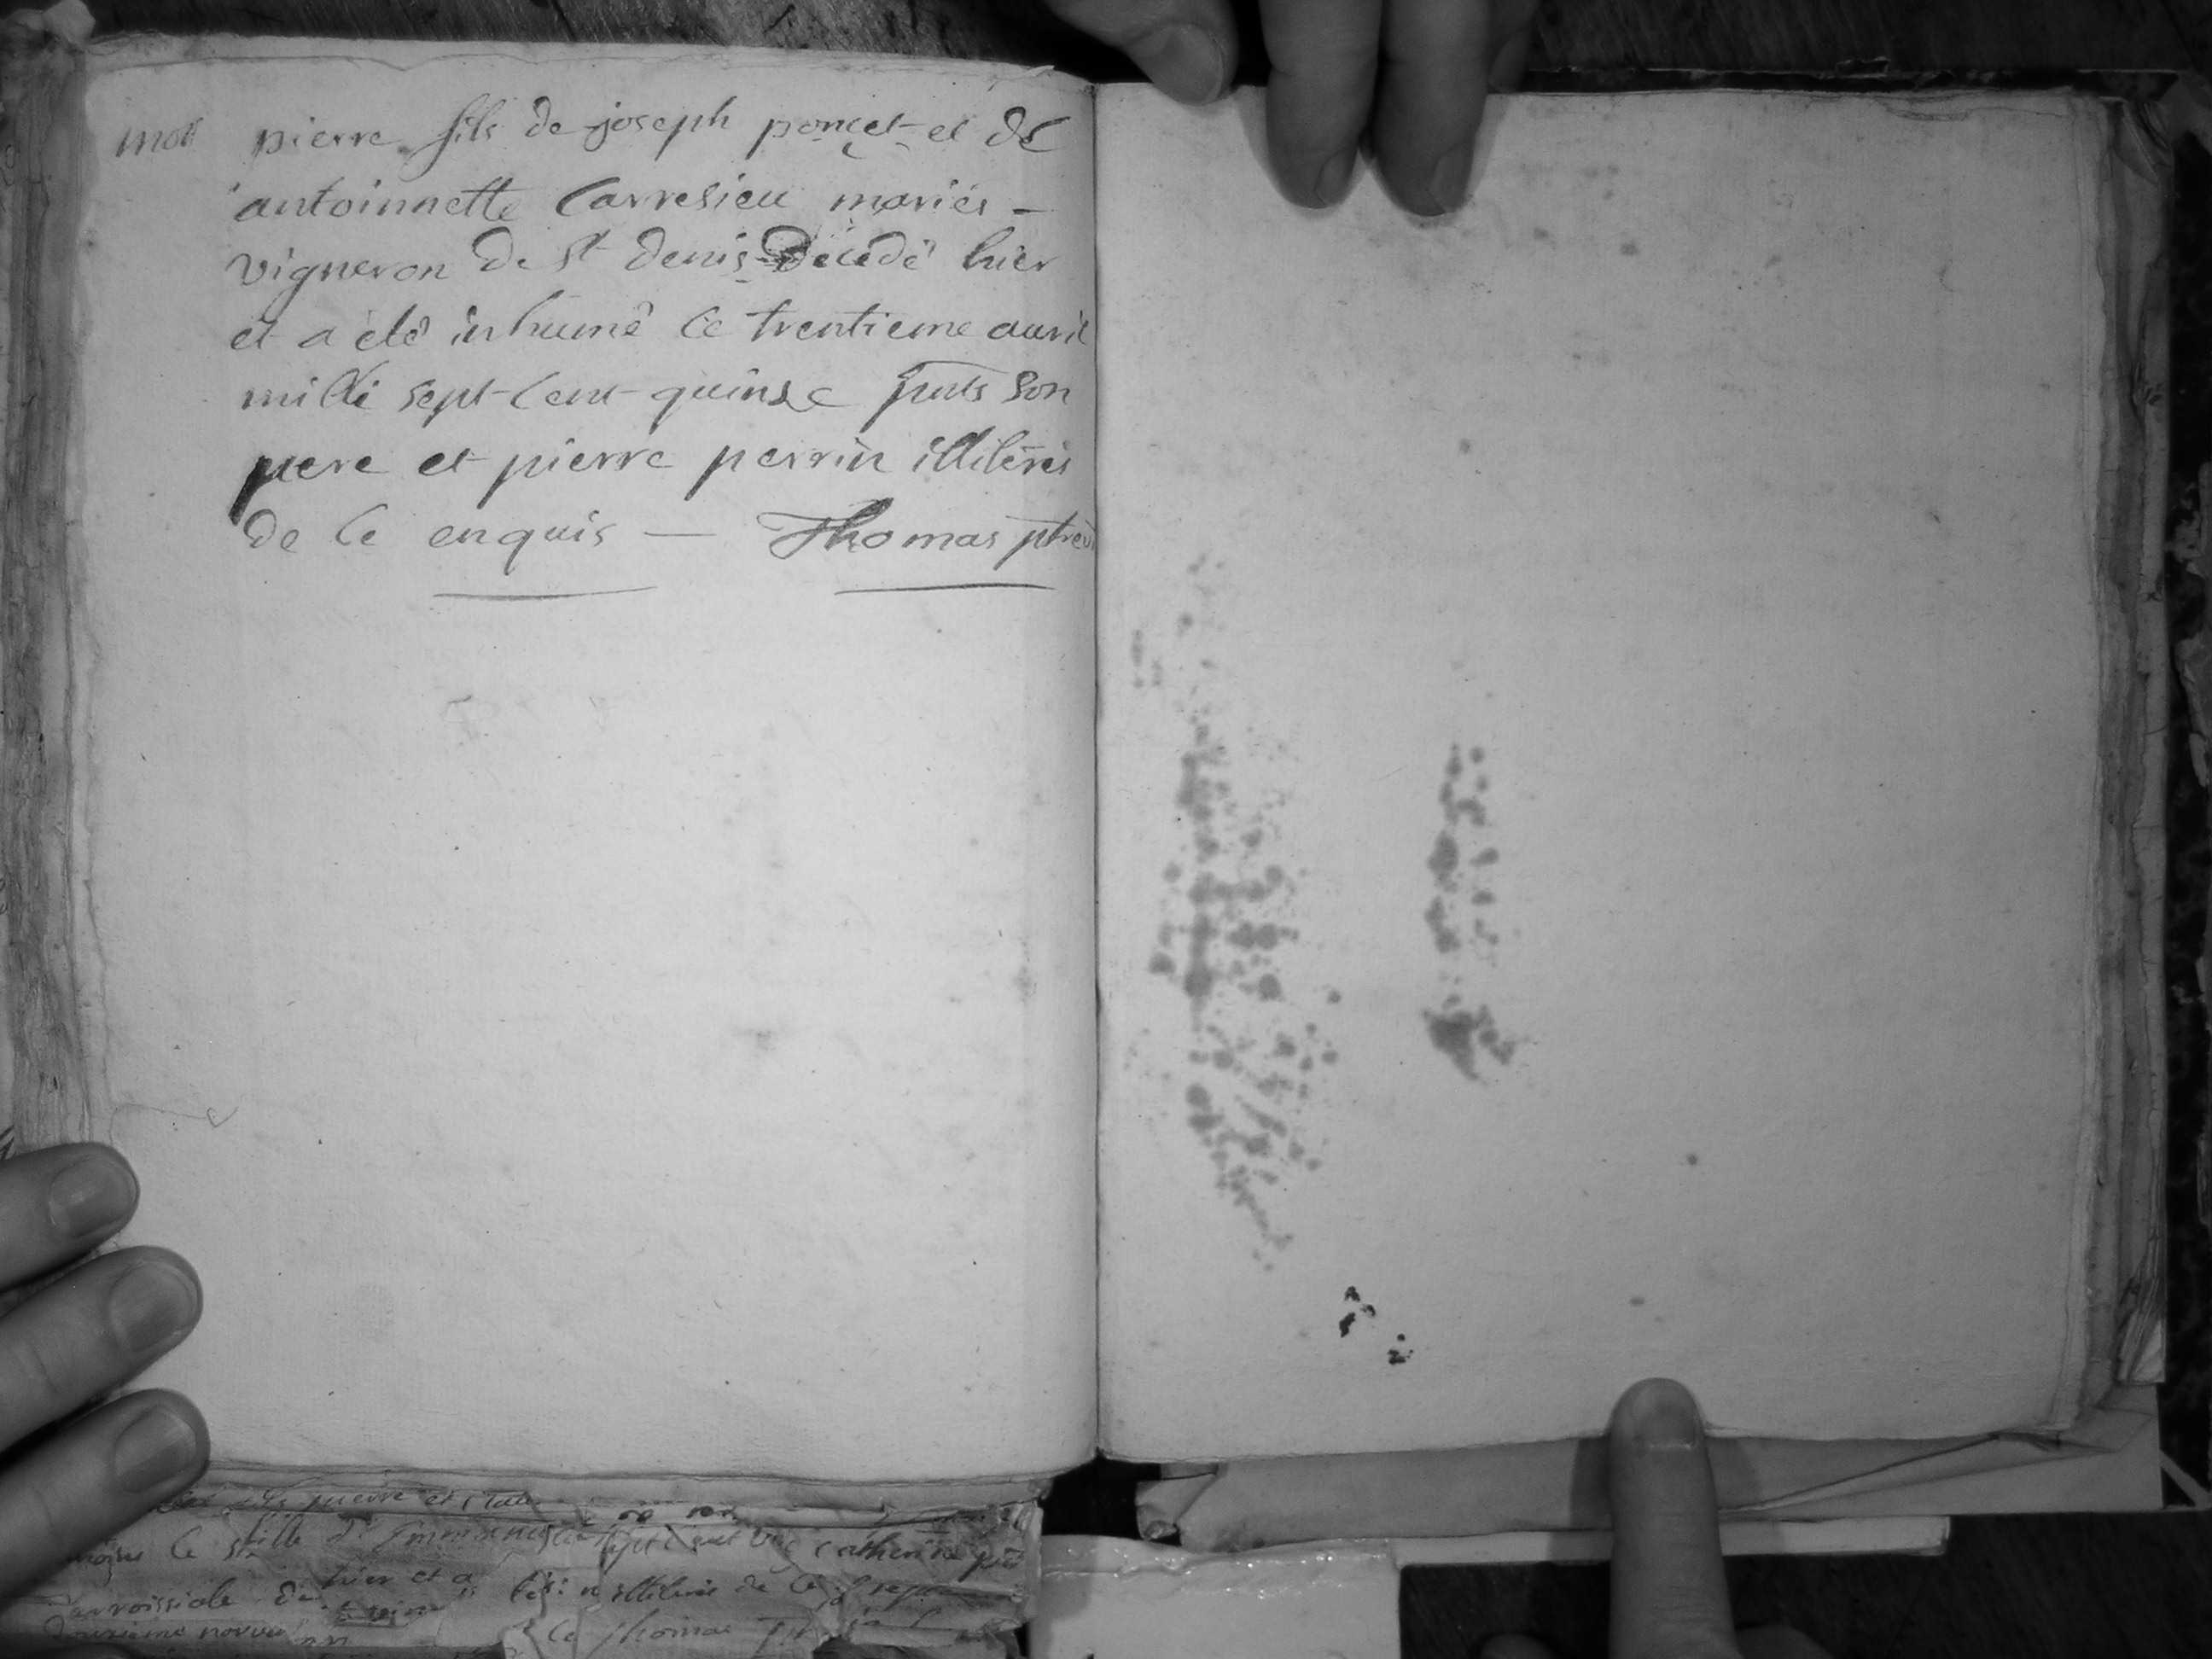 mort pierre fils de joseph ponçet et de
antoinnette Carresieu mariés -
vigneron de st denis Décédé hier
et a été inhumé ce trentieme auril
mille sept-Cent-quinse pnts son
pere et pierre perrin illiterés
de ce enquis — Thomas ptre
pierre et
ce fille d' sept Cent catherine
hier et a illiterés de ce
parroissiale
ce thomas